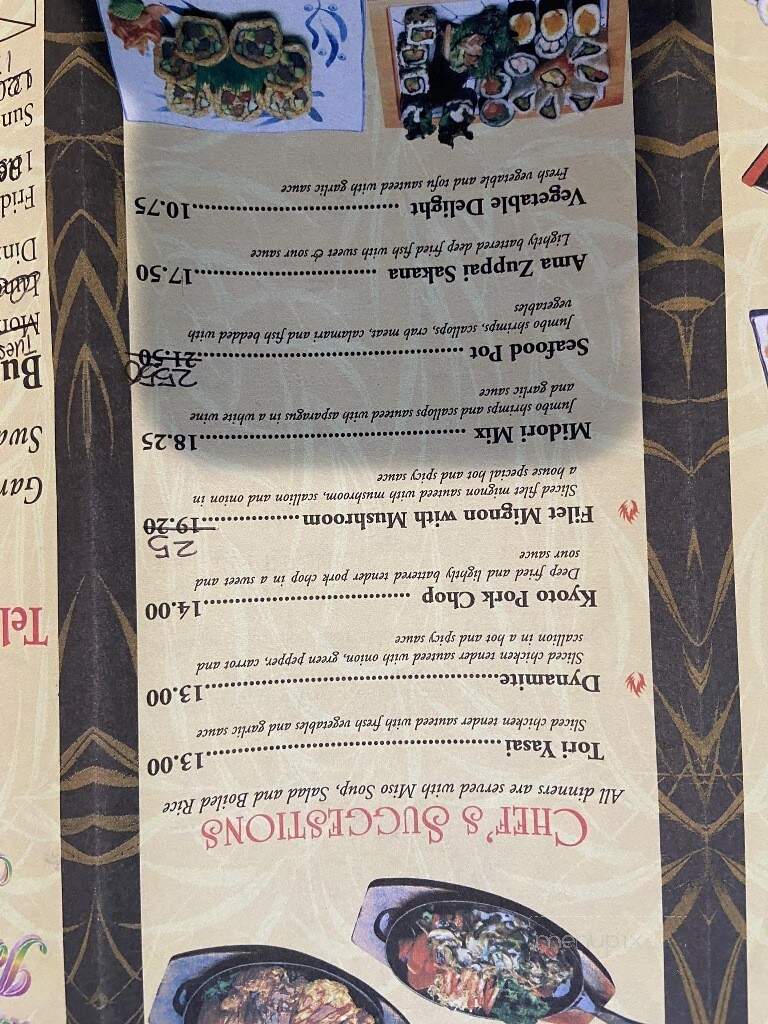 CHEF'S SUGGESTIONS
All dinners are served with Miso Soup, Salad and Boiled Rice
Tori Yasai..............................13.00
Sliced chicken tender sauteed with fresh vegetables and garlic sauce
Dynamite..............................13.00
Sliced chicken tender sauteed with onion, green pepper, carrot and
scallion in a hot and spicy sauce
Kyoto Pork Chop ..............................14.00
Deep fried and lightly battered tender pork chop in a sweet and
sour sauce
25
Filet Mignon with Mushroom..............19.20
Sliced filet mignon sauteed with mushroom, scallion and onion in
a house special hot and spicy sauce
Midori Mix ..............................18.25
Jumbo shrimps and scallops sauteed with asparagus in a white wine
and garlic sauce
25.50
Seafood Pot ..............................21.50
Jumbo shrimp, scallops, crab meat, calamari and fish bedded with
vegetables
Ama Zuppai Sakana ......................17.50
Lightly battered deep fried with fish sweet & sour sauce
Vegetable Delight ......................10.75
Fresh vegetable and tofu sauteed with garlic sauce
Tel
Gar
Swa
Bu
Tues
Mon
Din
Frid
Sun
menupix